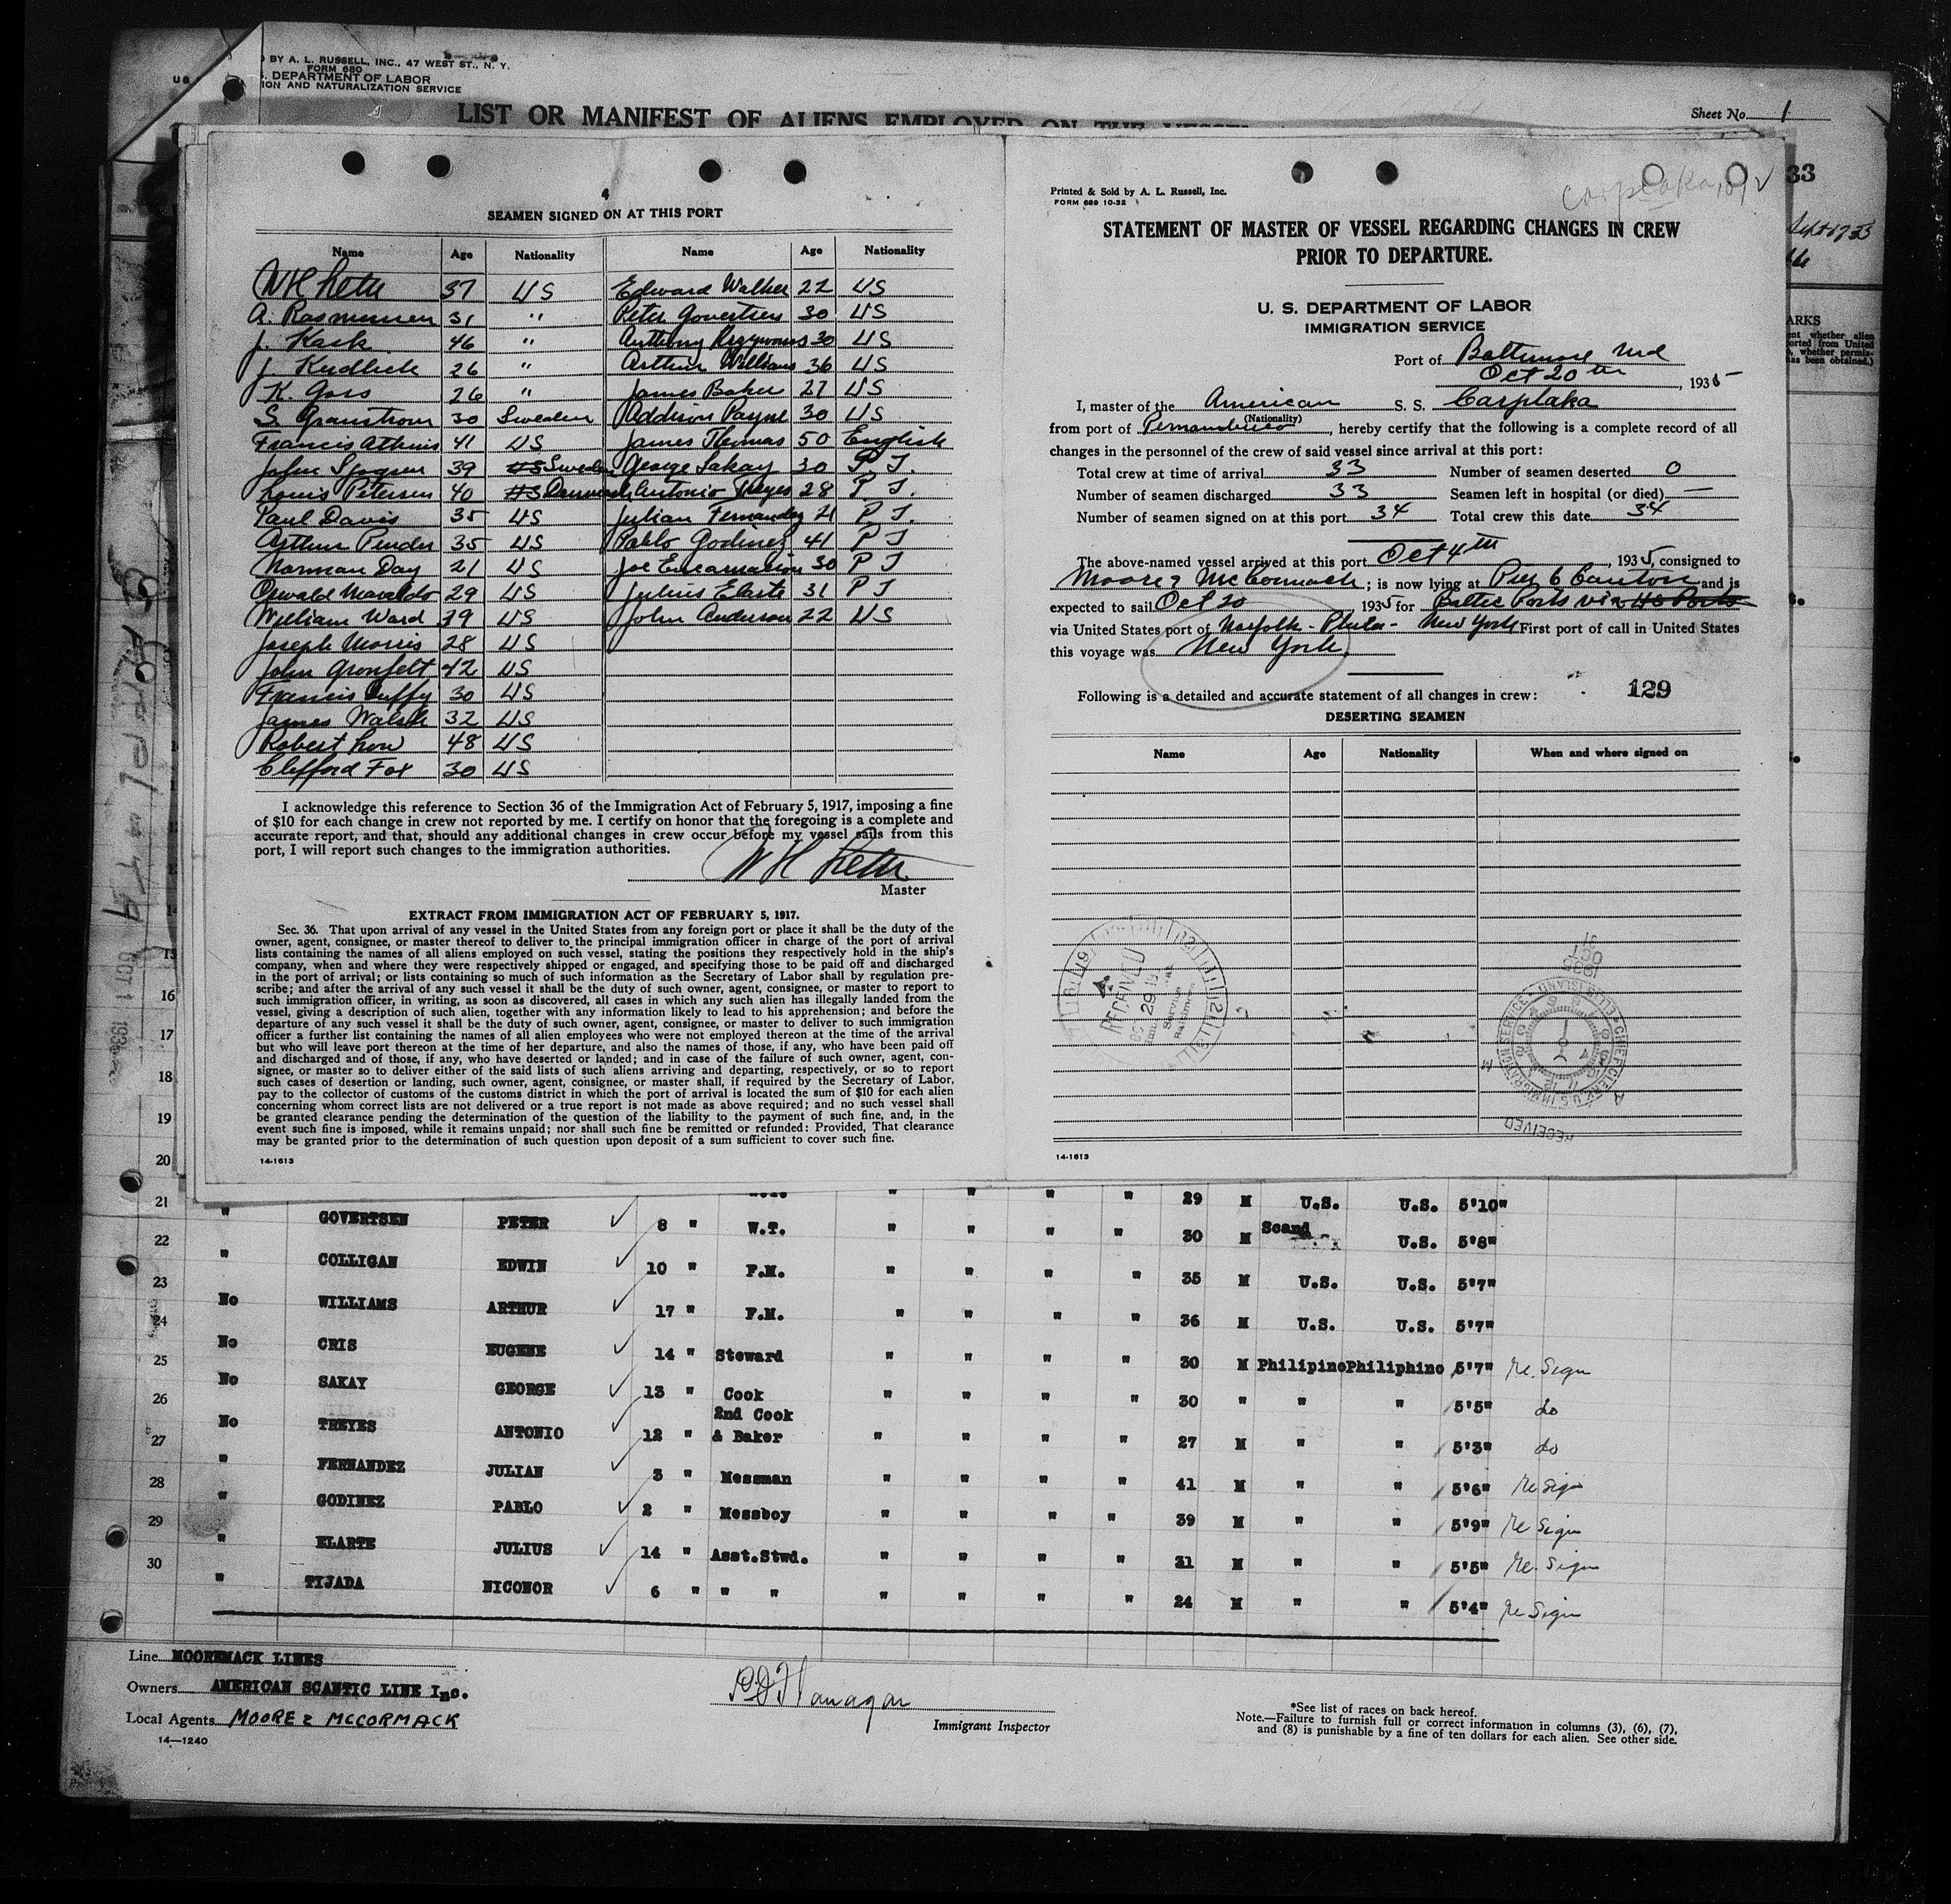 BY A. L. RUSSELL, INC., 47 WEST ST., N. Y.
FORM 680
DEPARTMENT OF LABOR
ION AND NATURALIZATION SERVICE
LIST OR MANIFEST OF ALIENS EMPLOYED ON THE VESSEL
Sheet No. 1
33
4
SEAMEN SIGNED ON AT THIS PORT
Name Age Nationality Name Age Nationality
37 US Edward Walker 22 US
A. Rasmussen 31 " Peter Govertsen 30 US
J. Kask 46 " Anthony 30 US
J. Kudlick 26 " Arthur Williams 36 US
K. Goss 26 " James Baker 27 US
S. Granstrom 30 Sweden Addison Payne 30 US
Francis Atkins 41 US James Thomas 50 English
John 39 US Sweden George Sakay 30 P I.
Louis Petersen 40 US Denmark Antonio Treyes 28 P I.
Paul Davis 35 US Julian Fernandez 21 P I.
Arthur Pinder 35 US Pablo Godinez 41 P I
Norman Day 21 US Joe Encarnation 30 P I
Oswald 29 US Julius Elarte 31 P I
William Ward 39 US John Anderson 22 US
Joseph Morris 28 US
John Gronfelt 42 US
Francis Duffy 30 US
James Walsh 32 US
Robert Low 48 US
Clifford Fox 30 US
I acknowledge this reference to Section 36 of the Immigration Act of February 5, 1917, imposing a fine
of $10 for each change in crew not reported by me. I certify on honor that the foregoing is a complete and
accurate report, and that, should any additional changes in crew occur before my vessel sails from this
port, I will report such changes to the immigration authorities.
Master
EXTRACT FROM IMMIGRATION ACT OF FEBRUARY 5, 1917.
Sec. 36. That upon arrival of any vessel in the United States from any foreign port or place it shall be the duty of the
owner, agent, consignee, or master thereof to deliver to the principal immigration officer in charge of the port of arrival
lists containing the names of all aliens employed on such vessel, stating the positions they respectively hold in the ship's
company, when and where they were respectively shipped or engaged, and specifying those to be paid off and discharged
in the port of arrival; or lists containing so much of such information as the Secretary of Labor shall by regulation pre-
scribe; and after the arrival of any such vessel it shall be the duty of such owner, agent, consignee, or master to report to
such immigration officer, in writing, as soon as discovered, all cases in which any such alien has illegally landed from the
vessel, giving a description of such alien, together with any information likely to lead to his apprehension; and before the
departure of any such vessel it shall be the duty of such owner, agent, consignee, or master to deliver to such immigration
officer a further list containing the names of all alien employees who were not employed thereon at the time of the arrival
but who will leave port thereon at the time of her departure, and also the names of those, if any, who have been paid off
and discharged and of those, if any, who have deserted or landed; and in case of the failure of such owner, agent, con-
signee, or master so to deliver either of the said lists of such aliens arriving and departing, respectively, or so to report
such cases of desertion or landing, such owner, agent, consignee, or master shall, if required by the Secretary of Labor,
pay to the collector of customs of the customs district in which the port of arrival is located the sum of $10 for each alien
concerning whom correct lists are not delivered or a true report is not made as above required; and no such vessel shall
be granted clearance pending the determination of the question of the liability to the payment of such fine, and, in the
event such fine is imposed, while it remains unpaid; nor shall such fine be remitted or refunded: Provided, That clearance
may be granted prior to the determination of such question upon deposit of a sum sufficient to cover such fine.
14-1613
Printed & Sold by A. L. Russell, Inc.
FORM 689 10-32
STATEMENT OF MASTER OF VESSEL REGARDING CHANGES IN CREW
PRIOR TO DEPARTURE.
U. S. DEPARTMENT OF LABOR
IMMIGRATION SERVICE
Port of Baltimore Md
Oct 20th, 1935
I, master of the American S. S. Carplaka
(Nationality)
from port of Pernambuco, hereby certify that the following is a complete record of all
changes in the personnel of the crew of said vessel since arrival at this port:
Total crew at time of arrival 33 Number of seamen deserted 0
Number of seamen discharged 33 Seamen left in hospital (or died) —
Number of seamen signed on at this port 34 Total crew this date 34
The above-named vessel arrived at this port Oct 4th, 1935, consigned to
Moore & McCormack; is now lying at Pier 6 Canton and is
expected to sail Oct 20 1935 for Baltic Ports via US Ports
via United States port of Norfolk - Phila - New York First port of call in United States
this voyage was New York.
Following is a detailed and accurate statement of all changes in crew:
129
DESERTING SEAMEN
Name Age Nationality When and where signed on
RECEIVED
14-1613
16
17
18
19
20
21 29 M U.S. U.S. 5'10"
22 " GOVERTSEN PETER 8 " W.T. " " " " 30 M Scand U.S. 5'8"
23 " COLLIGAN EDWIN 10 " F.M. " " " " 35 M U.S. U.S. 5'7"
24 No WILLIAMS ARTHUR 17 " F.M. " " " " 36 M U.S. U.S. 5'7"
25 No CRIS EUGENE 14 " Steward " " " " 30 M Philipino Philiphino 5'7" Re. Sign
26 No SAKAY GEORGE 13 " Cook " " " " 30 " " " 5'5" do
27 No TREYES ANTONIO 12 " 2nd Cook & Baker " " " " 27 M " " 5'3" do
28 " FERNANDEZ JULIAN 3 " Messman " " " " 41 M " " 5'6" Re Sign
29 " GODINEZ PABLO 2 " Messboy " " " " 39 M " " 5'9" Re Sign
30 " ELARTE JULIUS 14 " Asst.Stwd. " " " " 31 M " " 5'5" Re. Sign
" TIJADA NICONOR 6 " " " " " " " 24 M " " 5'4" Re Sign
Line MOOREMACK LINES
Owners AMERICAN SCANTIC LINE Inc.
Local Agents MOORE & MCCORMACK
14—1240
Immigrant Inspector
*See list of races on back hereof.
Note.—Failure to furnish full or correct information in columns (3), (6), (7),
and (8) is punishable by a fine of ten dollars for each alien. See other side.